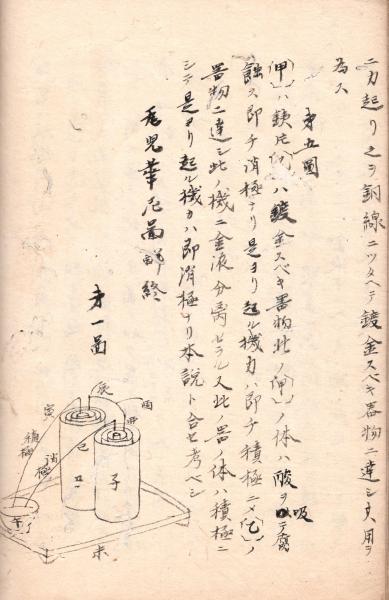 ニ力起リ之ヲ銅線ニツタヘテ鍍金スベキ器物ニ達シ其用ヲ
為ス
才五圖
(甲)ハ銕片(乙)ハ鍍金スベキ器物此ノ(甲)ノ体ハ酸ヲ吸テ腐
蝕ス即チ消極ナリ是ヨリ起ル機力ハ即チ積極ニメ(乙)ノ
器物ニ達シ此ノ機ニ金液分セラル又此ノ器ノ体ハ積極ニ
シテ是ヨリ起ル機力ハ即消極ナリ本説ト合セ考ベシ
華尼圖解終
才一圖
辰
酉
甲
寅
積極
消極
巳
丑
子
午
未